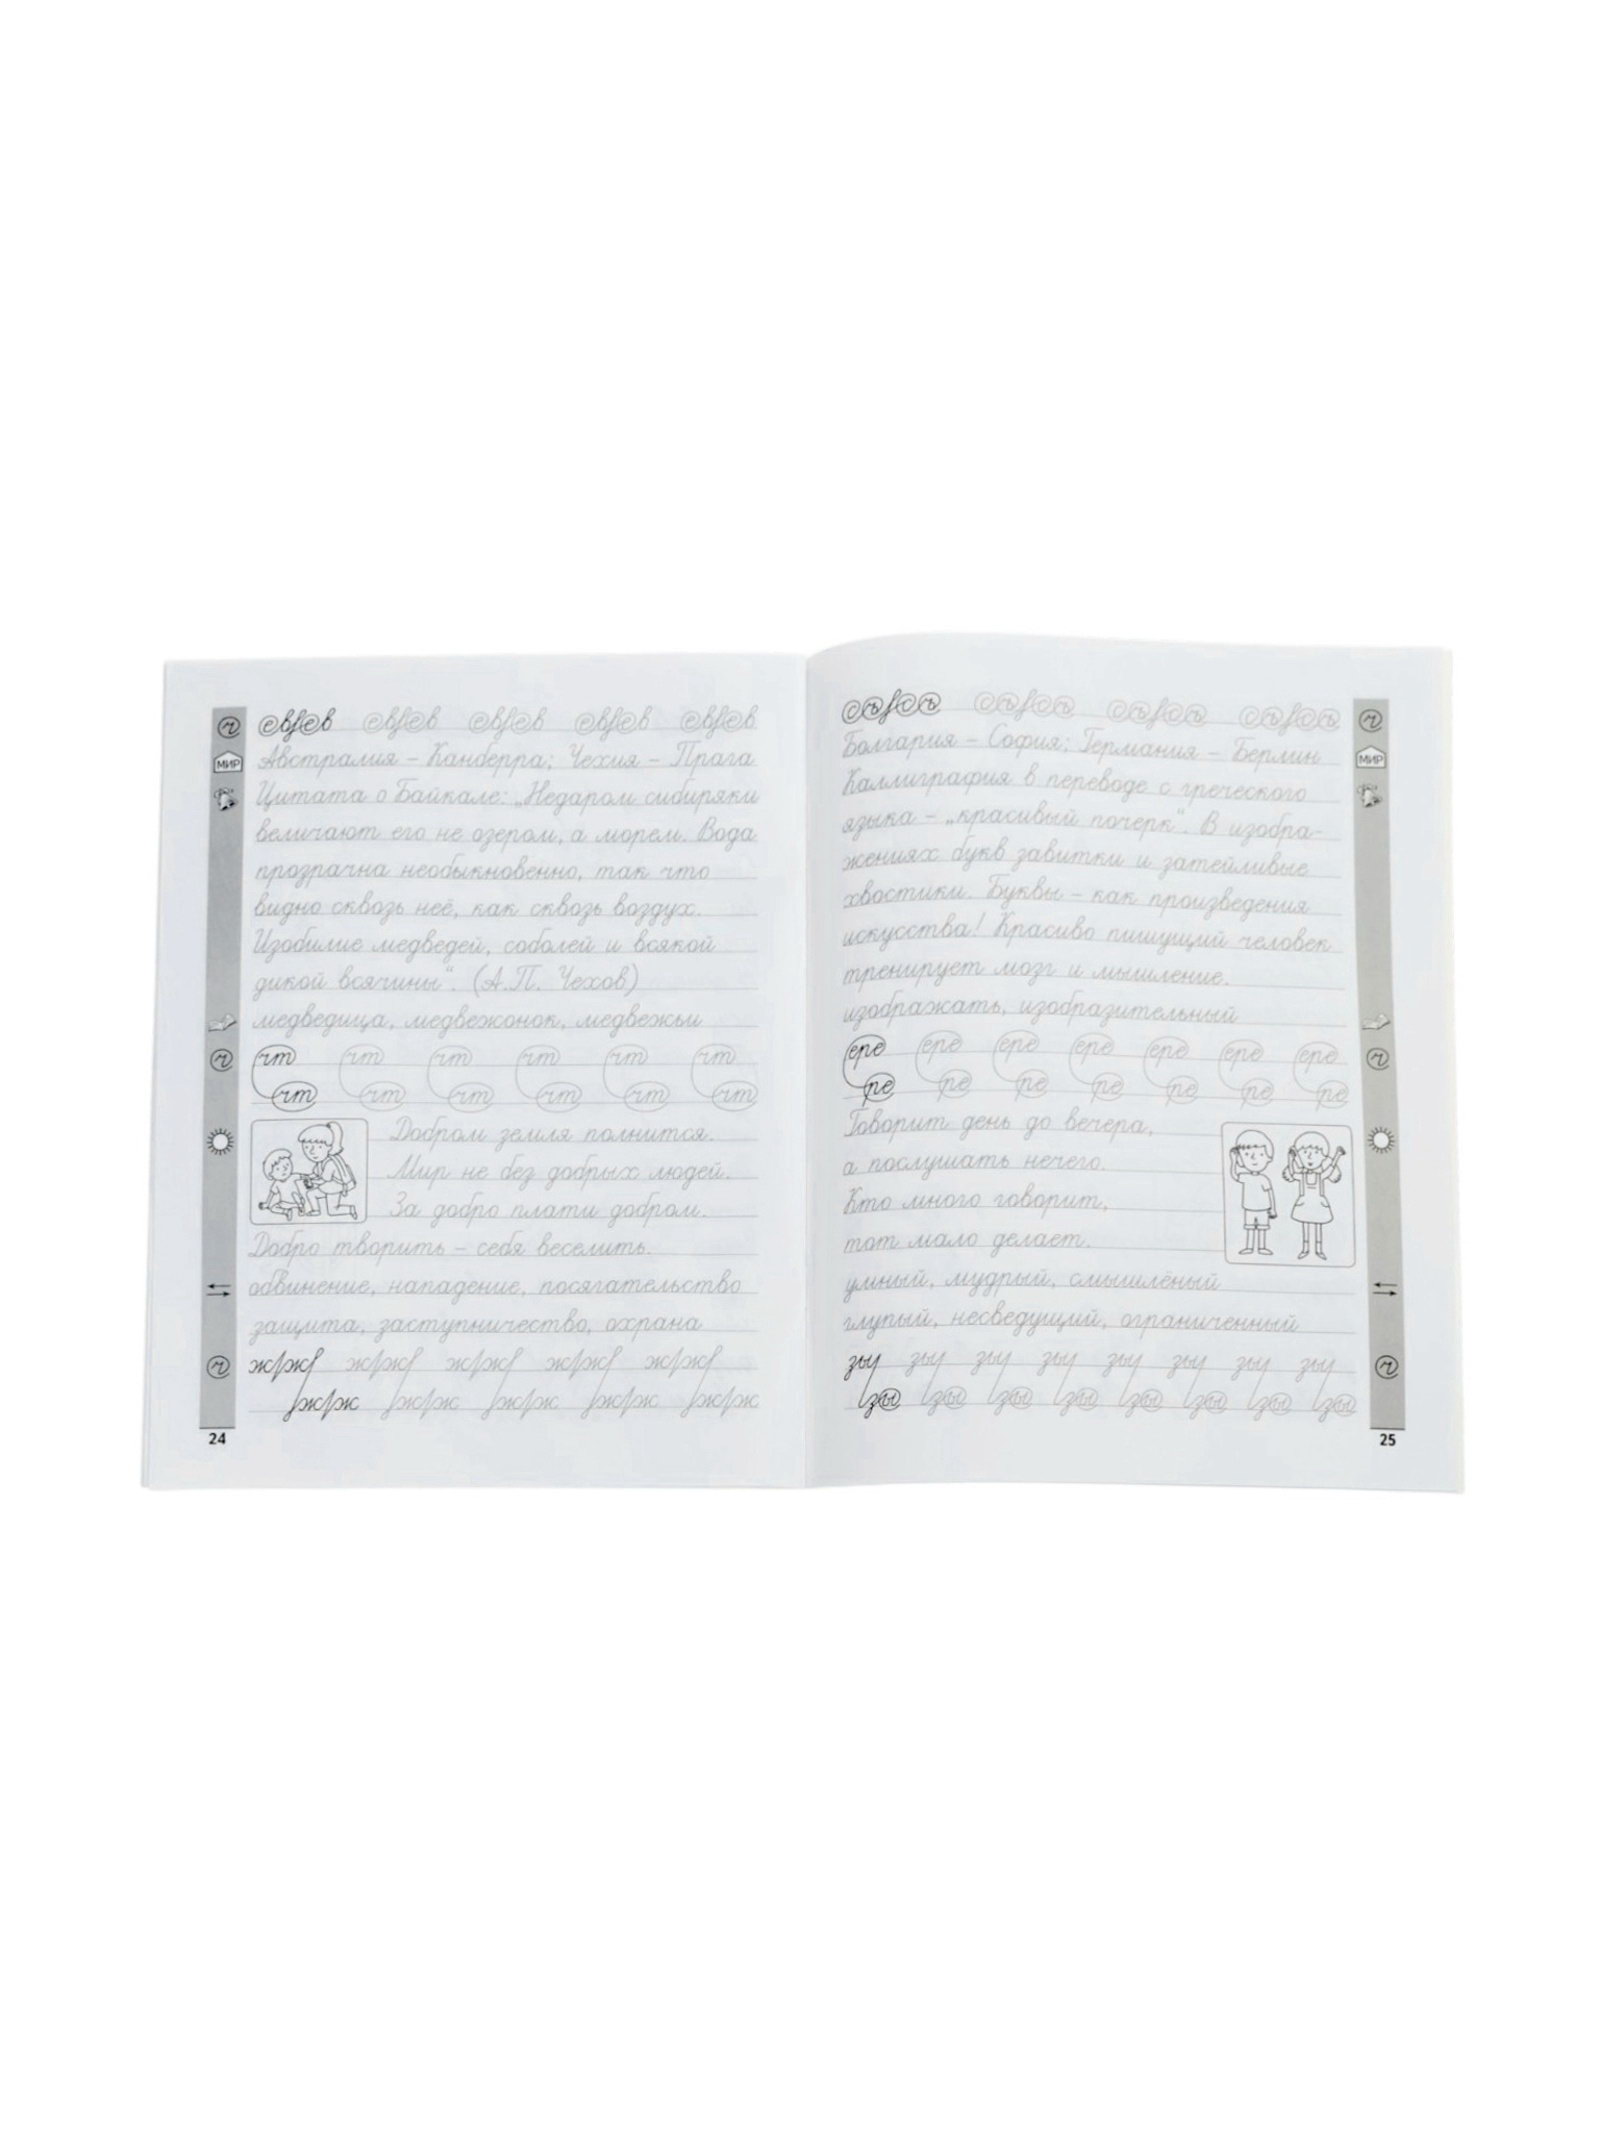 евгев евгев евгев евгев евгев
МИР
Австралия – Канберра; Чехия – Прага
Цитата о Байкале: „Недаром сибиряки
величают его не озером, а морем. Вода
прозрачна необыкновенно, так что
видно сквозь неё, как сквозь воздух.
Изобилие медведей, соболей и всякой
дикой всячины“. (А.П. Чехов)
медведица, медвежонок, медвежьи
чт чт чт чт чт чт
чт чт чт чт чт чт
Добром земля полнится.
Мир не без добрых людей.
За добро плати добром.
Добро творить – себя веселить.
обвинение, нападение, посягательство
защита, заступничество, охрана
24
МИР
Болгария – София; Германия – Берлин
Каллиграфия в переводе с греческого
языка – „красивый почерк“. В изобра-
жениях букв завитки и затейливые
хвостики. Буквы – как произведения
искусства! Красиво пишущий человек
тренирует мозг и мышление.
изображать, изобразительный
ере ере ере ере ере ере ере
ре ре ре ре ре ре ре
Говорит день до вечера,
а послушать нечего.
Кто много говорит,
тот мало делает.
умный, мудрый, смышлёный
глупый, несведущий, ограниченный
зы зы зы зы зы зы зы
25